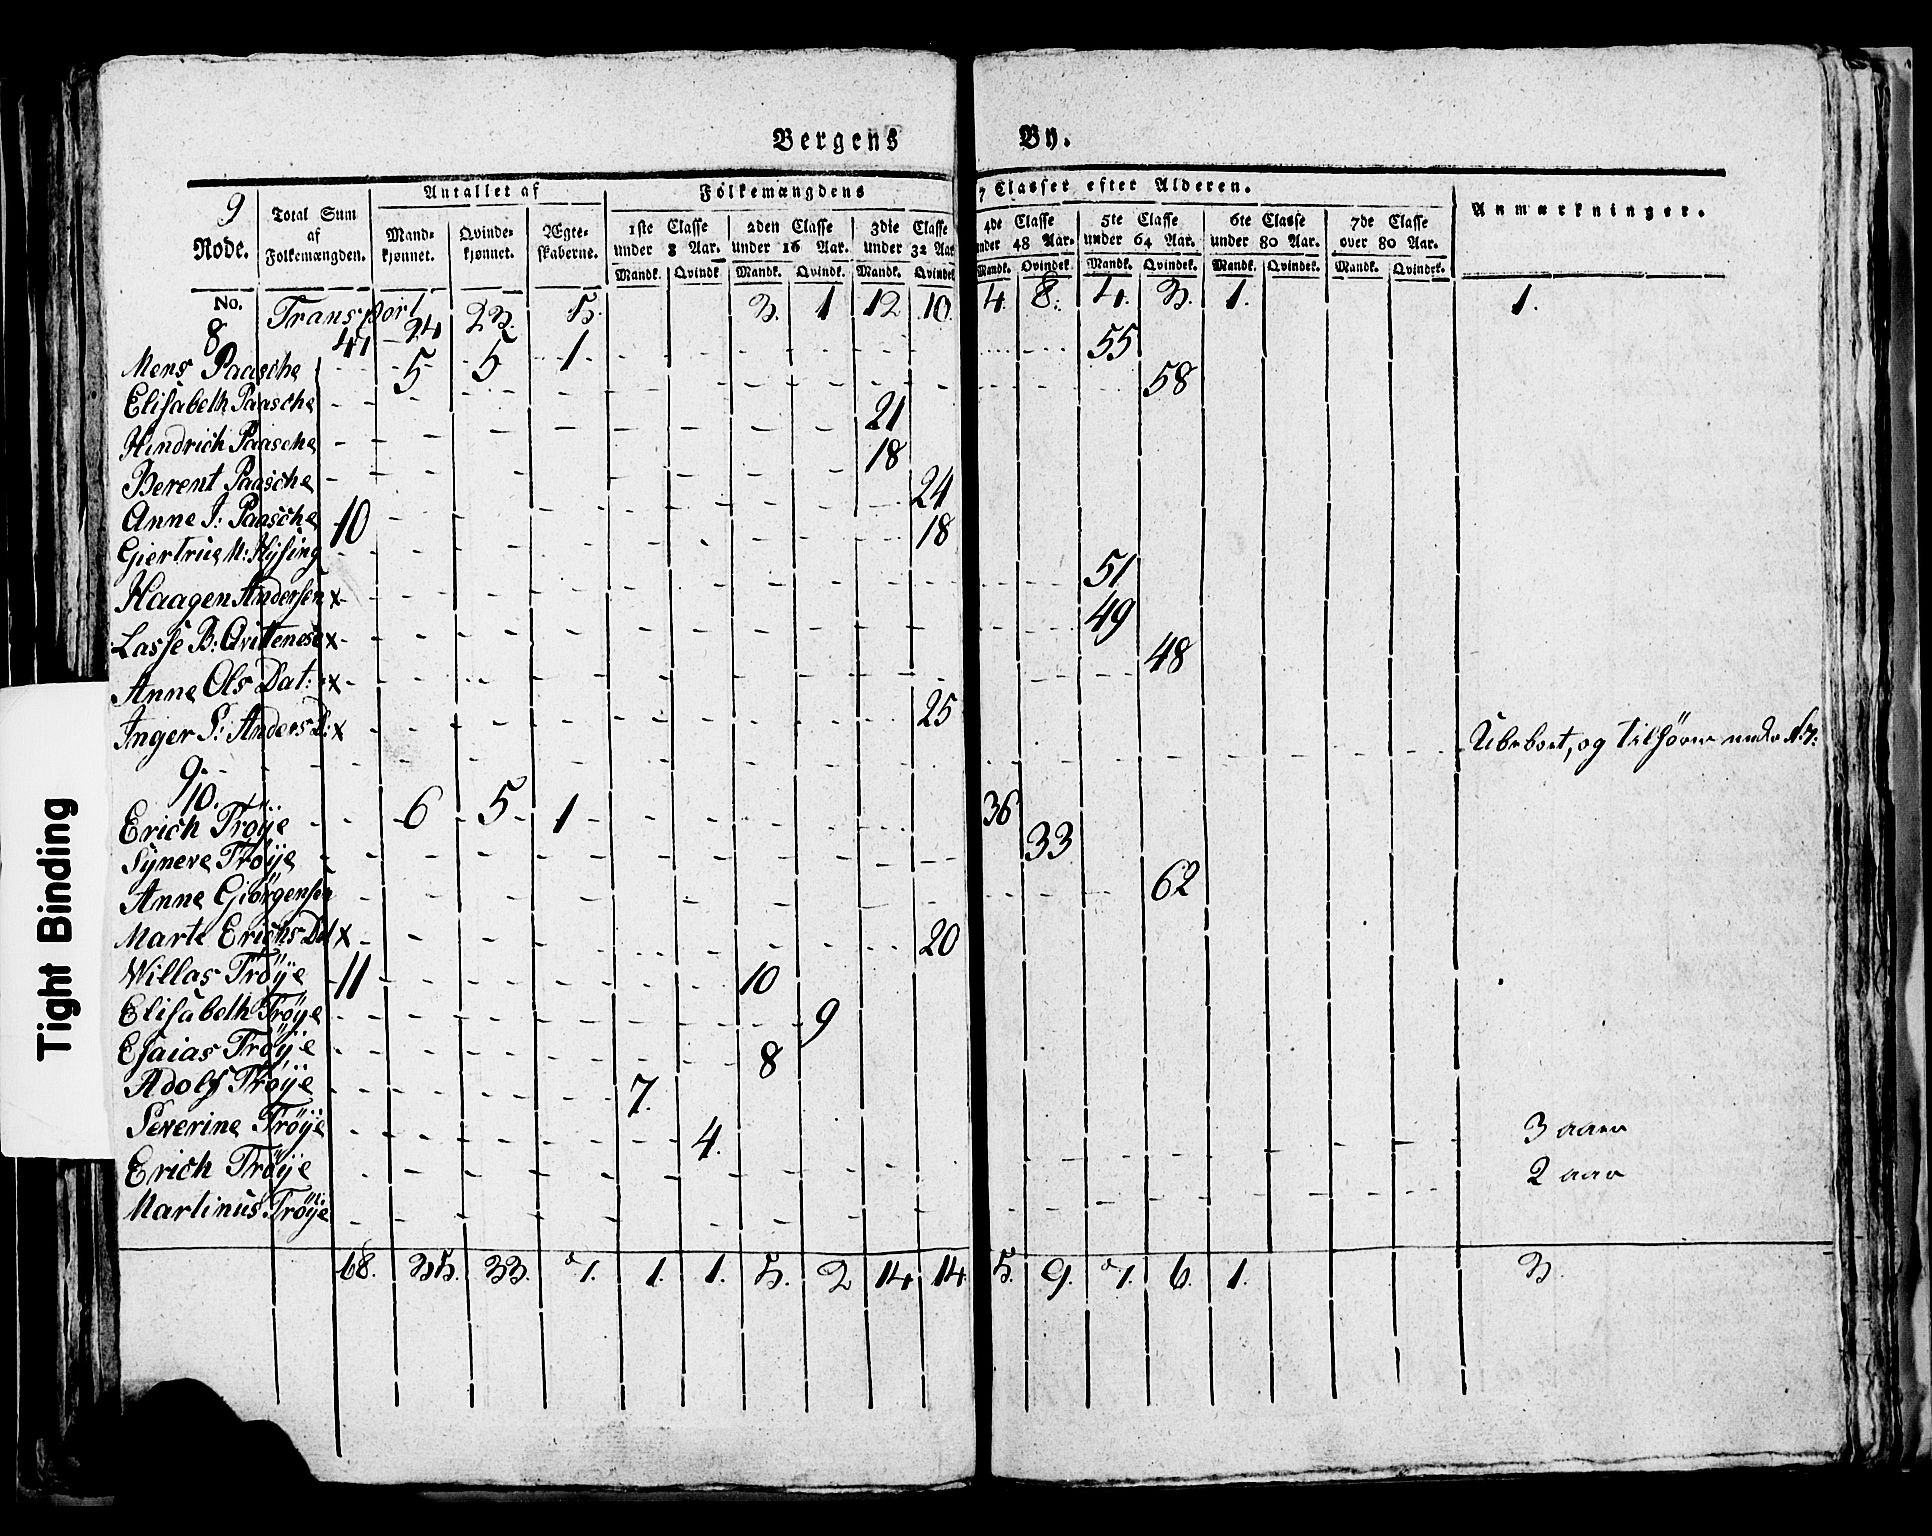 Bergens By.
9 Rode.
Total Sum af Folkemængden.
Antallet af
Mandkjønnet. Qvindekjønnet. Ægteskaberne.
Folkemængdens 7 Classer efter Alderen.
1ste Classe under 8 Aar. 2den Classe under 16 Aar. 3die Classe under 32 Aar. 4de Classe under 48 Aar. 5te Classe under 64 Aar. 6te Classe under 80 Aar. 7de Classe over 80 Aar.
Mandk. Qvindk. Mandk. Qvindk. Mandk. Qvindek. Mandk. Qvindek. Mandk. Qvindek. Mandk. Qvindek. Mandk. Qvindek.
Anmærkninger.
No. Transport 47 24 23. 5. 3. 1 12 10. 4. 8. 4. 3. 1. 1.
8
Mens Paasche 5 5 1 55
Elisabeth Paasche 58
Hindrich Paasche 21
Berent Paasche 18
Anne J: Paasche 10 24
Giertrue M: Hysing 18
Haagen Andersen x 51
Lasse B: Qvittenese x 49
Anne Ols Dat: x 48
Inger S: Anders D: x 25
9. Ubeboet, og tilhører under N: 7:
10.
Erich Tröÿe 6 5 1 36
Syneve Tröye 33
Anne Giörgensen 62
Marte Erichs Dat x 20
Willas Tröÿe 11 10
Elisabeth Tröÿe 9
Esaias Tröÿe 8
Adolf Tröÿe 7.
Severine Tröÿe 4.
Erich Tröÿe 3 aar
Martinus Tröÿe 2 aar
68. 35. 33. 7. 1. 1. 5. 2 14 14 5. 9. 7. 6. 1. 3.
Tight Binding